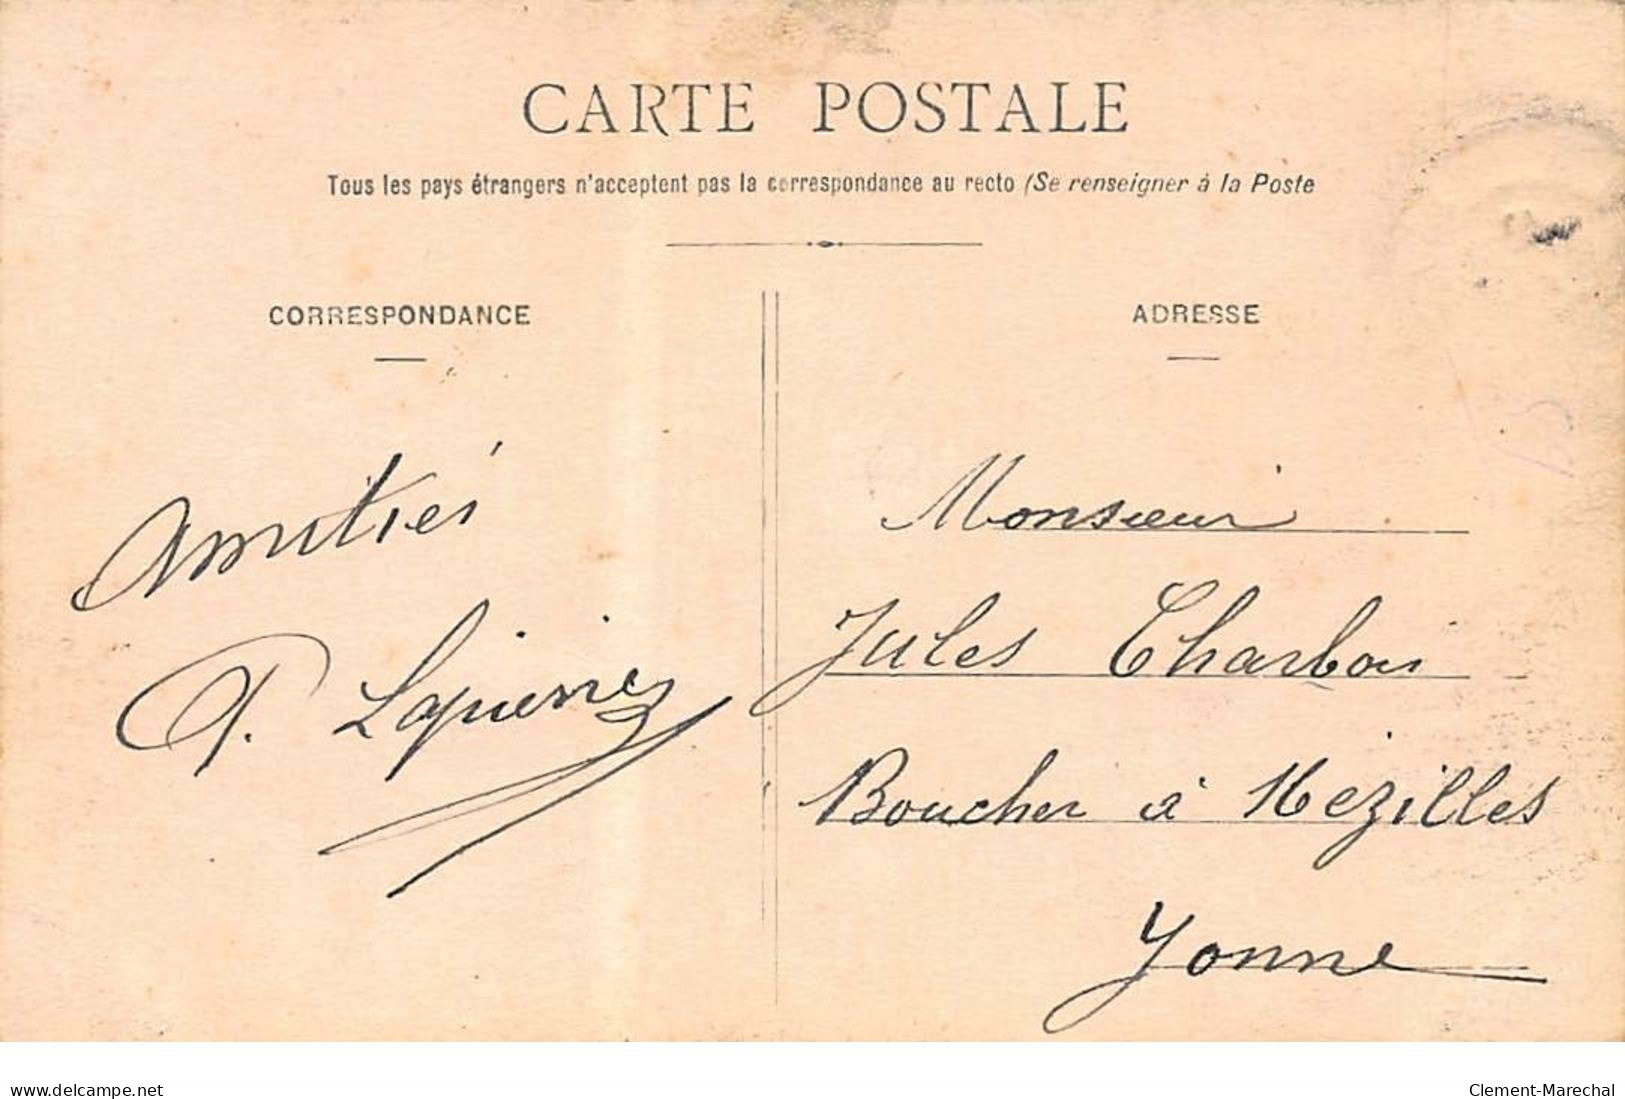 CARTE POSTALE
Tous les pays étrangers n'acceptent pas la correspondance au recto (Se renseigner à la Poste
CORRESPONDANCE
ADRESSE
Amitiés
P. Lapierre
Monsieur
Jules Charbois
Boucher à Mézilles
Yonne
www.delcampe.net
Clement-Marechal